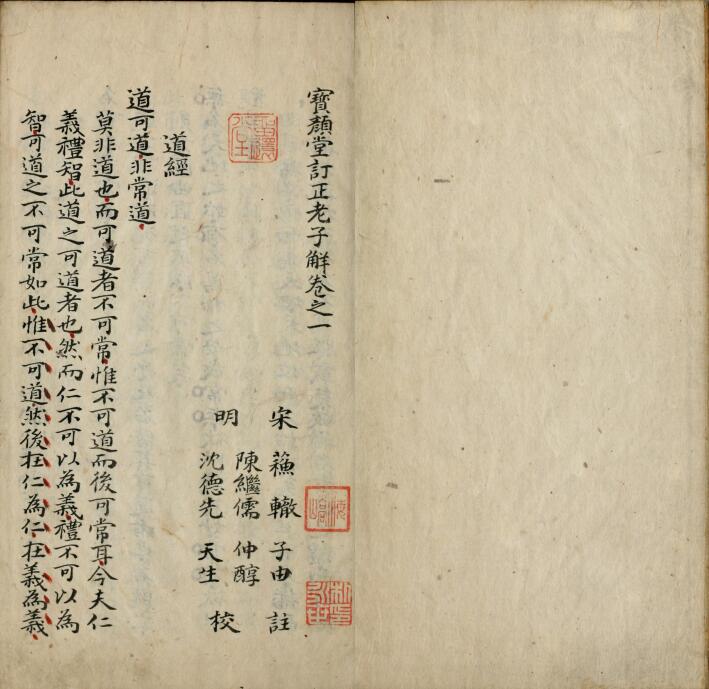 寶顏堂訂正老子解卷之一
宋蘓轍子由註
明陳繼儒仲醇
沈德先天生校
道經
道可道非常道
莫非道也而可道者不可常惟不可道而後可常耳今夫仁
義禮智此道之可道者也然而仁不可以為義禮不可以為
智可道之不可常如此惟不可道然後在仁為仁在義為義